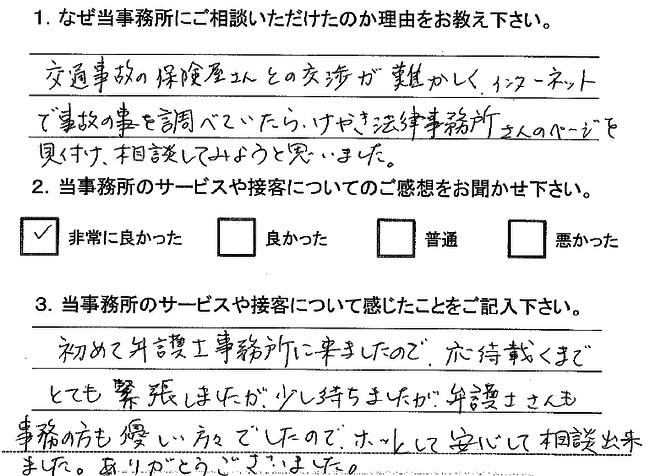 1. なぜ当事務所にご相談いただけたのか理由をお教え下さい。
交通事故の保険屋さんとの交渉が難かしく、インターネット
で事故の事を調べていたら、けやき法律事務所さんのページを
見付け、相談してみようと思いました。
2. 当事務所のサービスや接客についてのご感想をお聞かせ下さい。
非常に良かった 良かった 普通 悪かった
3. 当事務所のサービスや接客について感じたことをご記入下さい。
初めて弁護士事務所に来ましたので、応待載くまで
とても緊張しましたが、少し待ちましたが、弁護士さんも
事務の方も優しい方々でしたので、ホッとして安心して相談出来
ました。ありがとうございました。